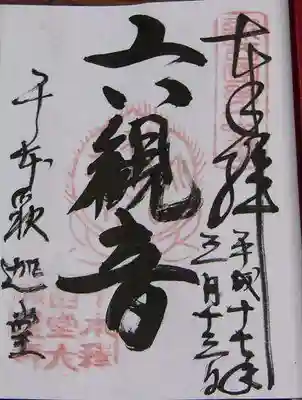 奉拝
平成十七年
三月十三日
六観音
千本釈迦堂